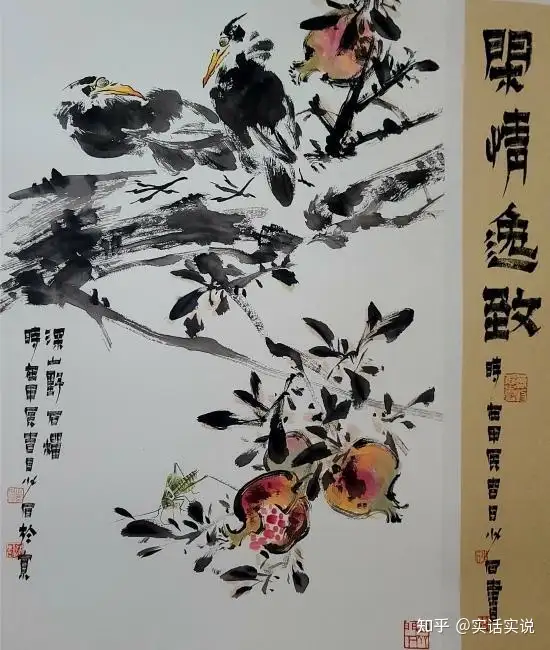 閑情逸致
時在甲辰春日少石書
深山野石榴
時在甲辰春日少石於
知乎 @实话实说